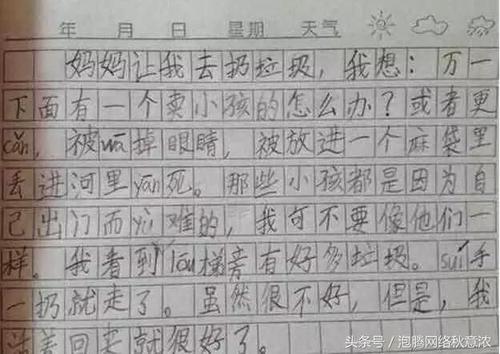 年 月 日 星期 天气
妈妈让我去扔垃圾,我想:万一
下面有一个卖小孩的怎么办?或者更
cǎn,被wā掉眼睛,被放进一个麻袋里
丢进河里yān死。那些小孩都是因为自
己出门而yù难的,我可不要像他们一
样。我看到lóu梯旁有好多垃圾。suí手
一扔就走了。虽然很不好,但是,我
回来就很好了。
头条号/泡腾网络秋意浓